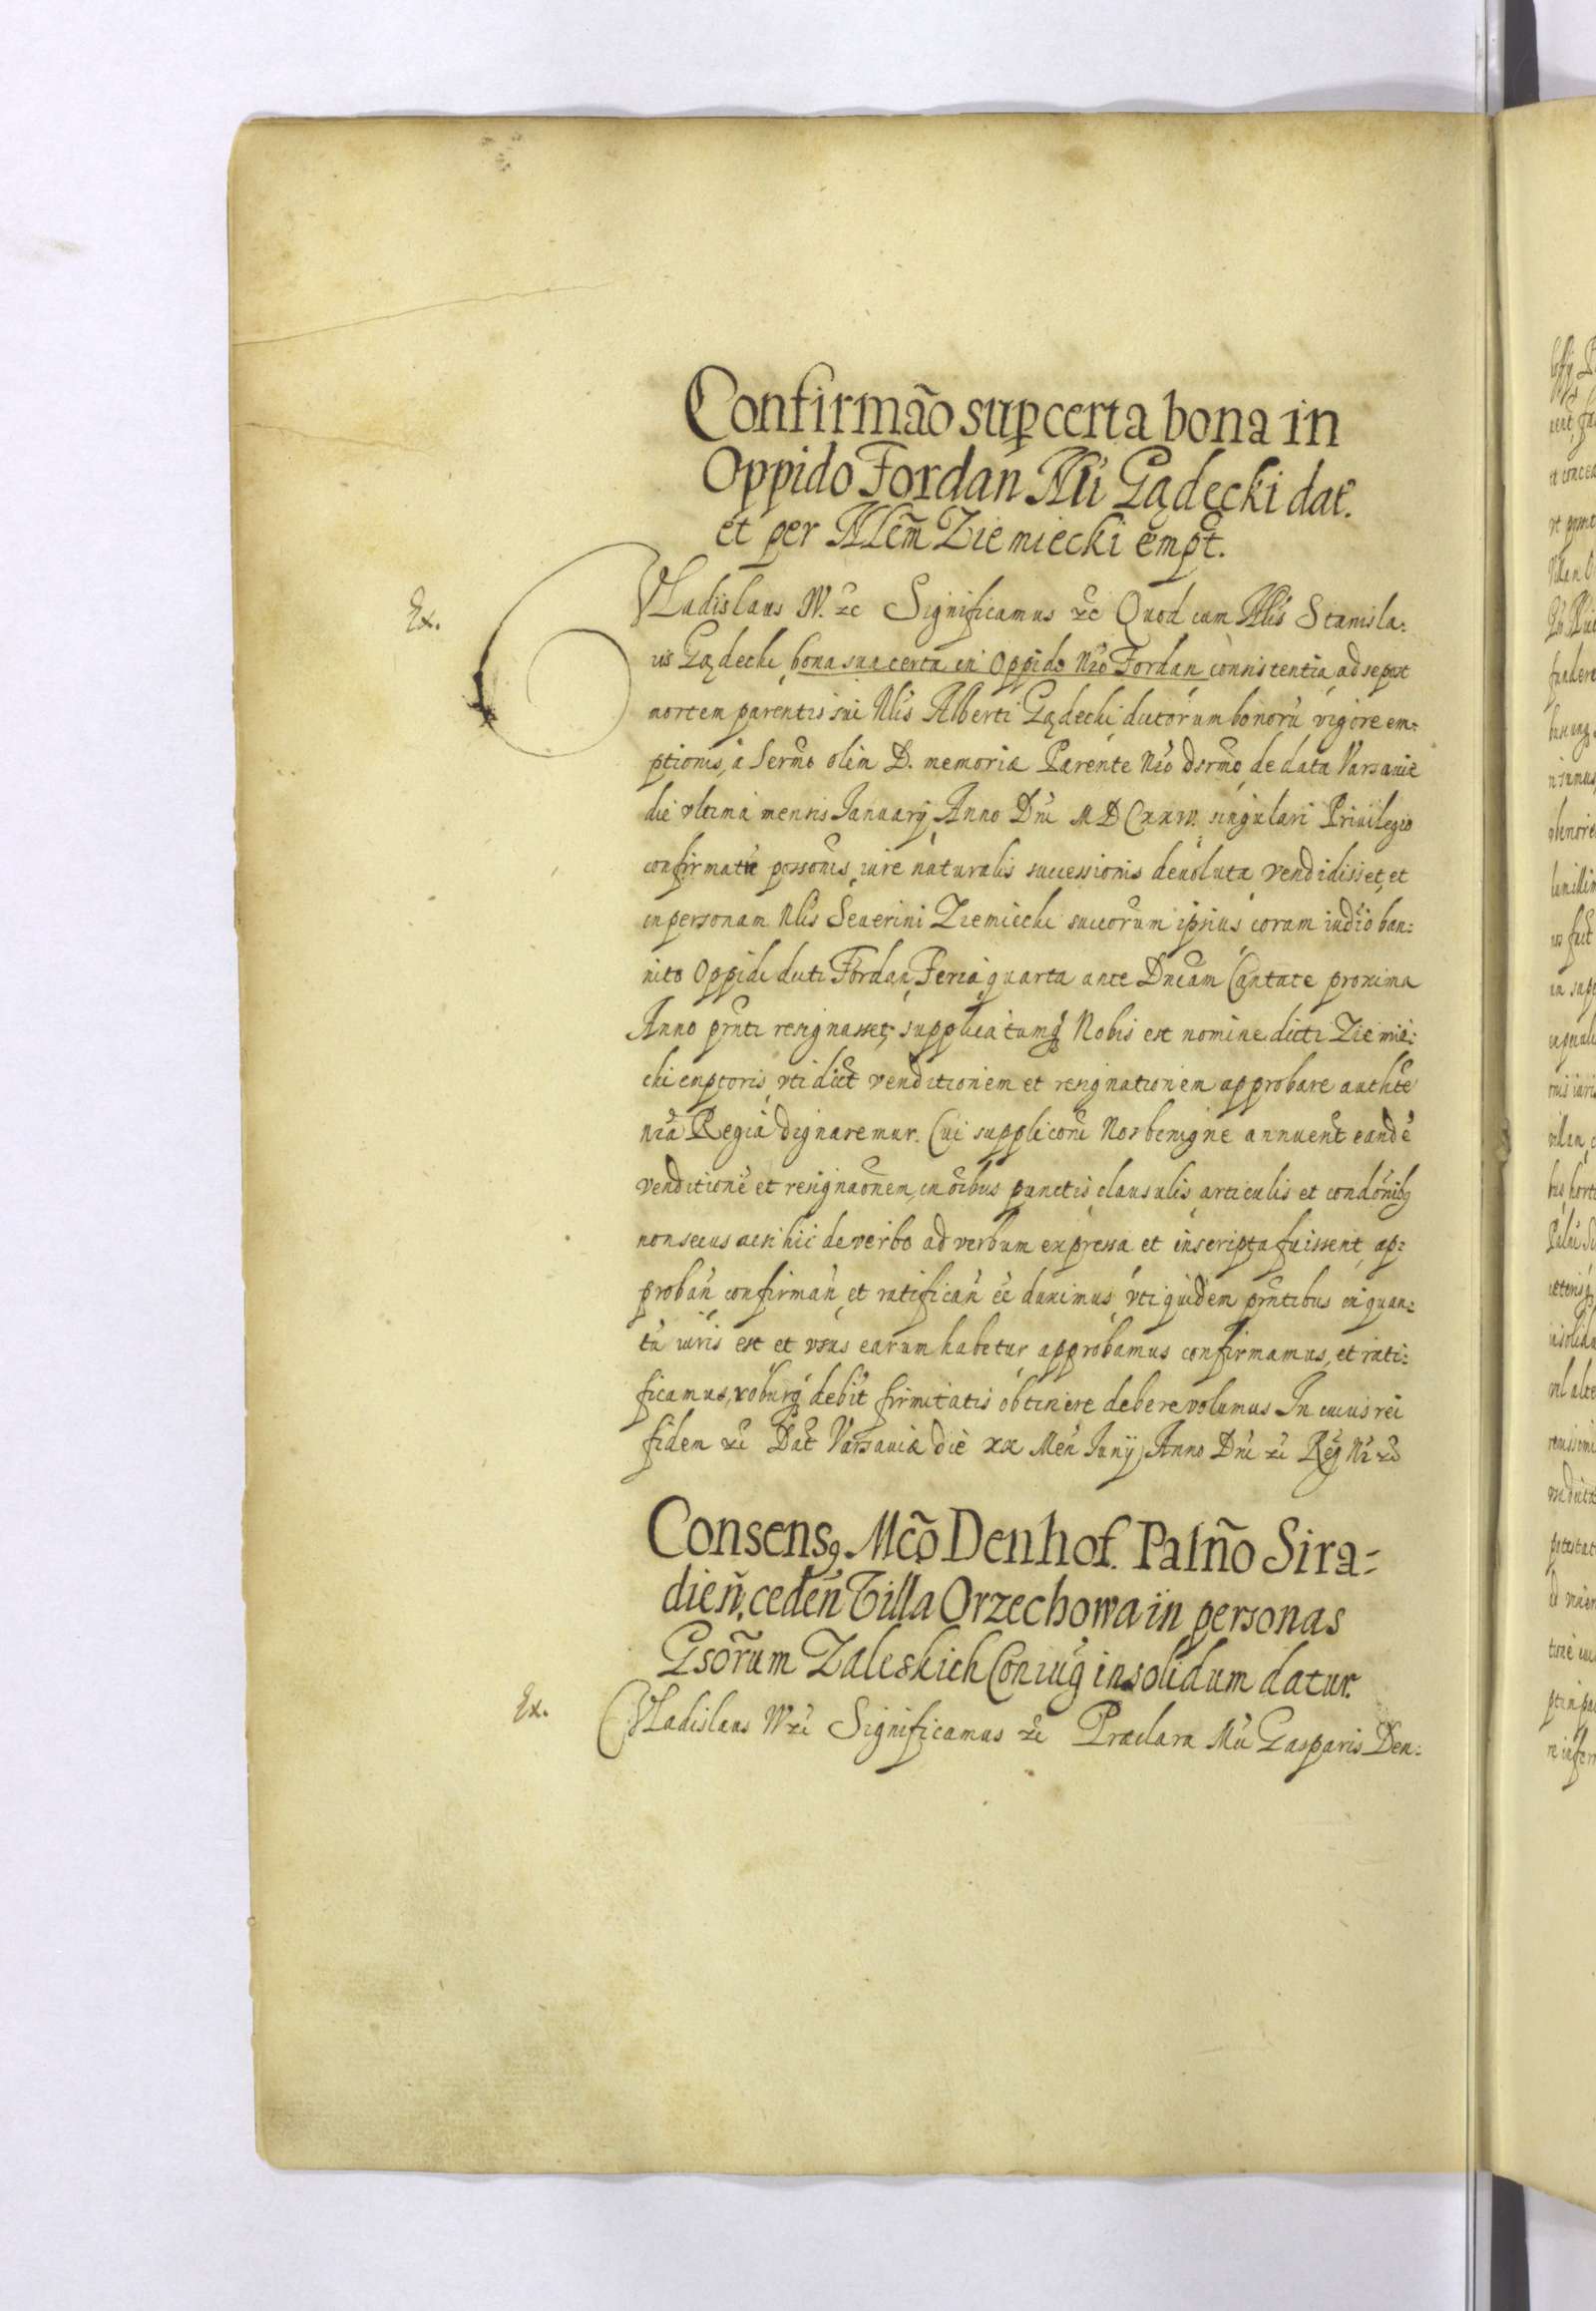 Confirmão sup certa bona in
Oppido Fordan Nli Gądecki dat.
et per Nlem Ziemiecki empt.
Ex.
Vladislaus IV. etc Significamus etc Quod cum Nlis Stanisla:
us Gądecki, bona sua certa in Oppido Nro Fordan consistentia, ad se post
mortem parentis sui Nlis Alberti Gądecki dictorum bonorū vigore em:
ptionis, a Sermo olim D. memoriæ Parente Nro dsrmo de data Varsaviæ
die vltima mensis Ianuarij Anno Dni MDCXXIV. singulari Priuilegio
confirmatæ possonis, iure naturalis successionis deuoluta vendidisset, et
in personam Nlis Seuerini Ziemiecki succorum ipsius coram iudio ban:
nito Oppidi dicti Fordan, Feria quarta ante Dncam Cantate proxima
Anno prnti resignasset, supplicatumq Nobis est nomine dicti Ziemie:
cki emptoris, vti dict venditionem et resignationem approbare authte
nra Regia dignaremur. Cui suppliconi Nos benigne annuent eandē
venditionē et resignaonem, in oibus punctis, clausulis, articulis et condonibq
non secus ac si hic de verbo ad verbum expressa et inscripta fuissent, ap:
proban confirman et ratifican ec duximus, vti quidem prntibus in quan:
tū iuris est et vsus earum habetur approbamus confirmamus, et rati:
ficamus, roburq debit firmitatis obtinere debere volumus In cuius rei
fidem etc Dat Varsaviæ die xx Men Iunij Anno Dni etc Reg Nr etc
Consensq Mco Denhof. Palño Sira:
dieñ, ceden Villa Orzechowa in personas
Gsorum Zaleskich Coniug in solidum datur.
Ex.
Vladislaus IV etc Significamus etc Præclara Mci Gasparis Den: